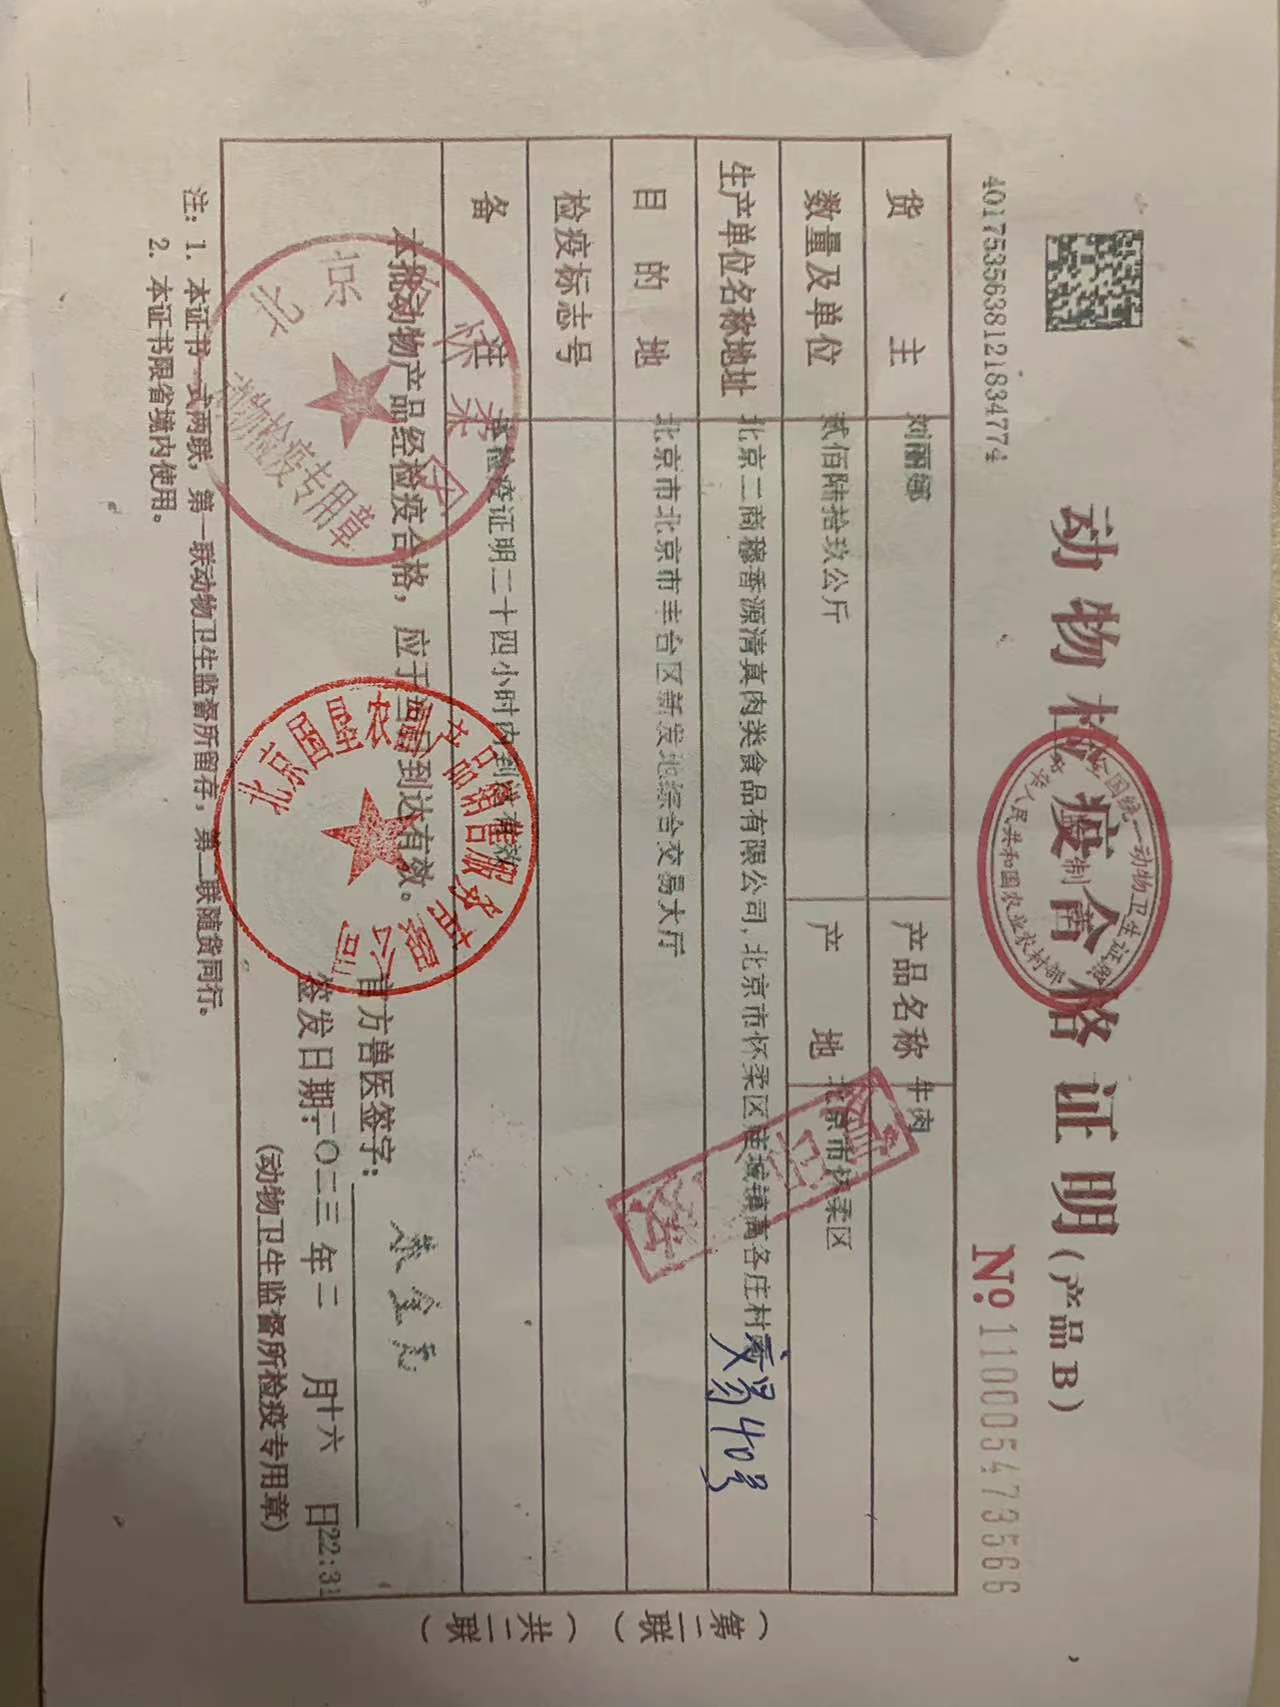 动物检疫合格证明(产品B)
4017535638121834774
№ 110005473566
全国统一动物卫生证照
中华人民共和国农业农村部
制
货主 刘丽娜 产品名称 牛肉
数量及单位 贰佰陆拾玖公斤 产地 北京市怀柔区
生产单位名称地址 北京二商穆香源清真肉类食品有限公司,北京市怀柔区庙城镇高各庄村
交易40号
目的地 北京市北京市丰台区新发地综合交易大厅
检疫标志号
备 本检疫证明二十四小时内到达有效
本批动物产品经检疫合格,应于当日到达有效。
官方兽医签字:
签发日期:二〇二三年二月十六日22:31
(动物卫生监督所检疫专用章)
北京 怀柔区
动物检疫专用章
北京国垦农副产品销售服务有限公司
注:1. 本证书一式两联,第一联动物卫生监督所留存,第二联随货同行。
2. 本证书限省境内使用。
(第二联)(共二联)